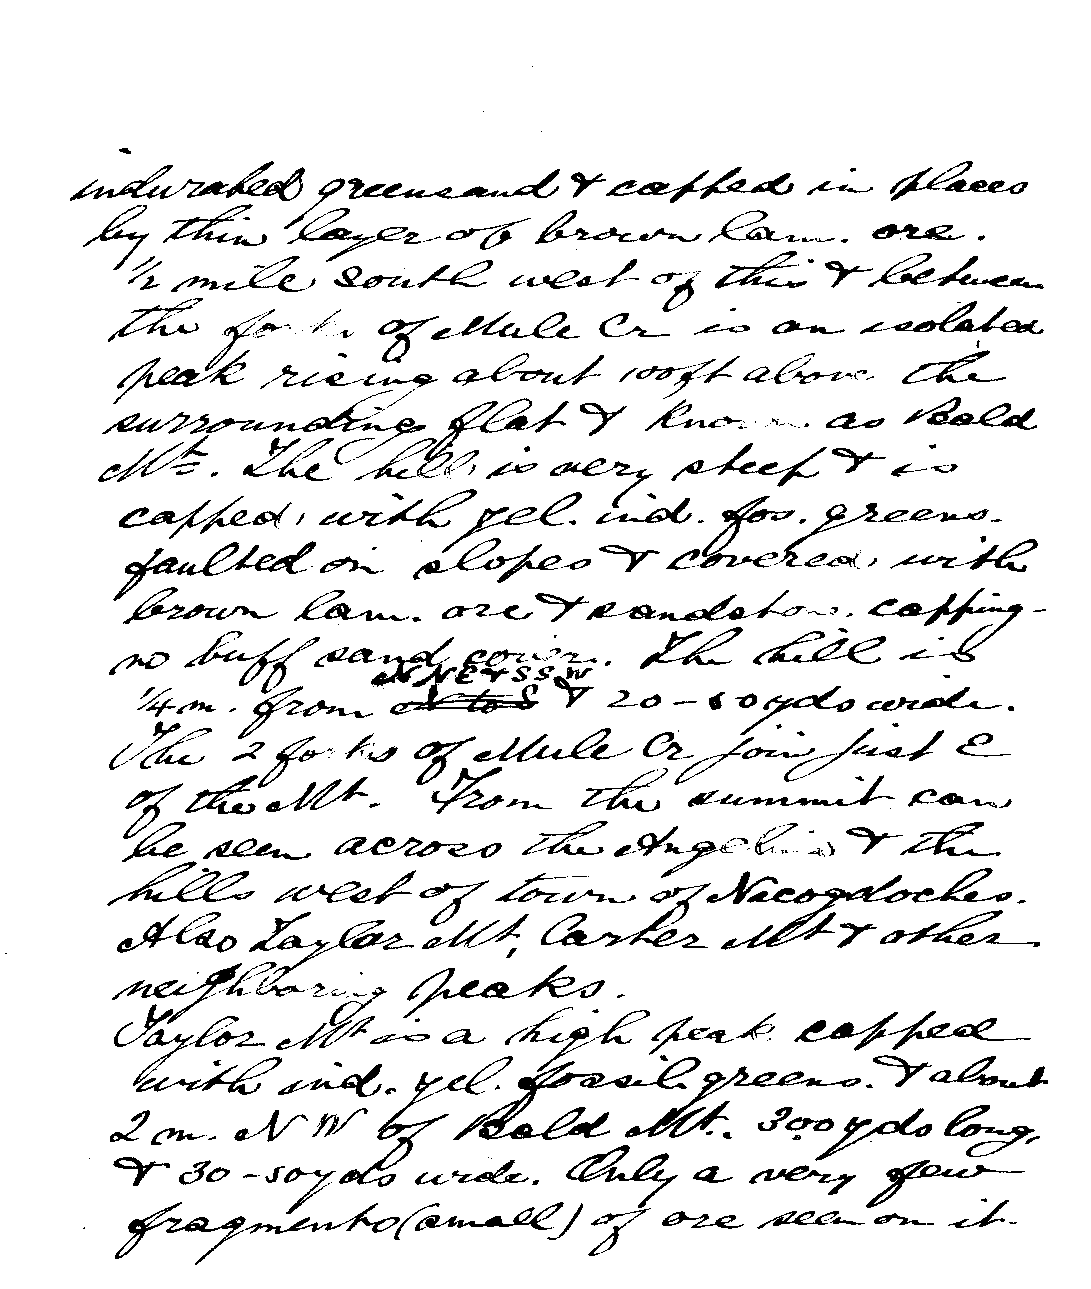 indurated greensand & capped in places
by thin layer of brown lam. ore.
1/2 mile south west of this & between
the forks of Mule Cr is an isolated
peak rising about 100ft above the
surrounding flat & known as Bald
Mt. The hill is very steep & is
capped with yel. ind. fos. greens.
faulted on slopes & covered with
brown lam. ore & sandstone capping -
no buff sand cover. The hill is
NNE & SSW
1/4 m. from N to S & 20 - 50 yds wide.
The 2 forks of Mule Cr join just E
of the Mt. From the summit can
be seen across the Angelina & the
hills west of town of Nacogdoches.
Also Taylor Mt, Carter Mt & other
neighboring peaks.
Taylor Mt is a high peak capped
with ind. yel. fossil greens. & about
2 m. NW of Bald Mt. 300 yds long,
& 30 - 50 yds wide. Only a very few
fragments (small) of ore seen on it.